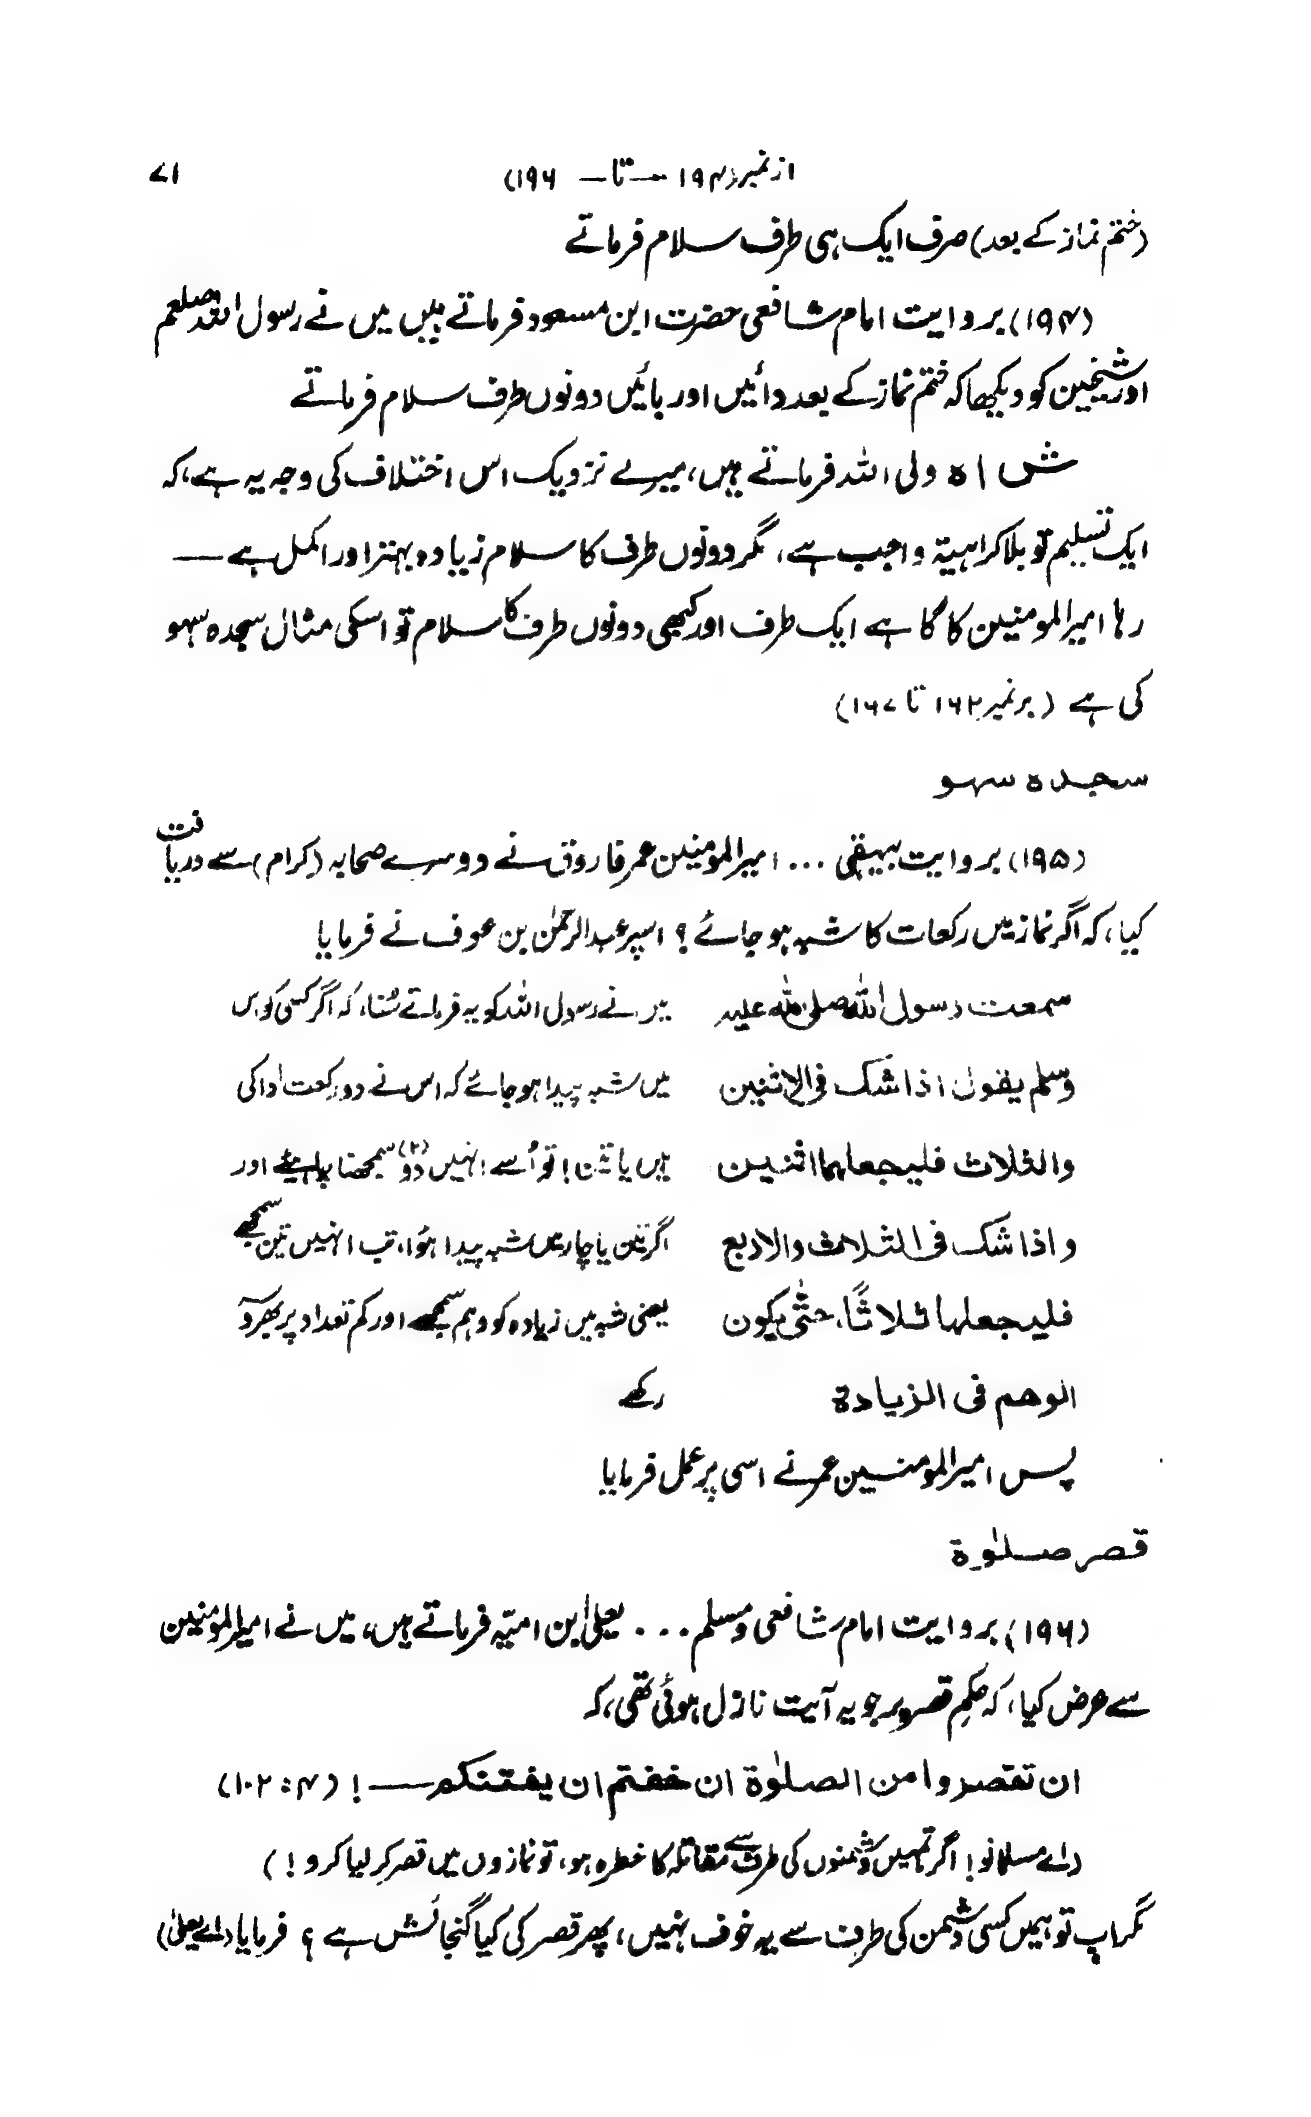 از نمبر (۱۹۴ — تا — ۱۹۶) ۷۱
(ختم نماز کے بعد) صرف ایک ہی طرف سلام فرماتے
(۱۹۴) بروایت امام شافعی حضرت ابن مسعود فرماتے ہیں میں نے رسول اللہ صلعم
اور شیخین کو دیکھا کہ ختم نماز کے بعد دائیں اور بائیں دونوں طرف سلام فرماتے
شاہ ولی اللہ فرماتے ہیں، میرے نزدیک اس اختلاف کی وجہ یہ ہے، کہ
ایک تسلیم تو بلا کراہیۃ واجب ہے، مگر دونوں طرف کا سلام زیادہ بہتر اور اکمل ہے —
رہا امیر المومنین کا گاہے ایک طرف اور کبھی دونوں طرف کا سلام تو اسکی مثال سجدہ سہو
کی ہے (بر نمبر ۱۶۲ تا ۱۶۷)
سجدہ سہو
(۱۹۵) بروایت بیہقی ... امیر المومنین عمر فاروق نے دوسرے صحابہ (کرام) سے دریافت
کیا، کہ اگر نماز میں رکعات کا شبہ ہو جائے؟ اسپر عبدالرحمٰن بن عوف نے فرمایا
سمعت رسول اللہ صلی اللہ علیہ میں نے رسول اللہ کو یہ فرماتے سُنا، کہ اگر کسی کو اس
وسلم یقول اذا شک فی الاثنین میں شبہ پیدا ہو جائے کہ اس نے دو رکعت ادا کی
والثلاث فلیجعلہما اثنین ہیں یا تین! تو اُسے انہیں دو (۲) سمجھنا چاہیئے اور
و اذا شک فی الثلاث والاربع اگر تین یا چار میں شبہ پیدا ہوا، تب انہیں تین سمجھے
فلیجعلہا ثلاثًا، حتّٰی یکون یعنی شبہ میں زیادہ کو وہم سمجھے اور کم تعداد پر بھروسہ
الوهم فی الزیادة رکھے
پس امیر المومنین عمر نے اسی پر عمل فرمایا
قصر صلوٰة
(۱۹۶) بروایت امام شافعی و مسلم ... یعلیٰ بن امیّہ فرماتے ہیں، میں نے امیر المومنین
سے عرض کیا، کہ حکمِ قصر پر جو یہ آیت نازل ہوئی تھی، کہ
ان تقصروا من الصلوٰة ان خفتم ان یفتنکم —! (۴ : ۱۰۲)
(اے مسلمانو! اگر تمہیں دشمنوں کی طرف سے مقاتلہ کا خطرہ ہو، تو نمازوں میں قصر کر لیا کرو!)
مگر اب تو ہمیں کسی دشمن کی طرف سے یہ خوف نہیں، پھر قصر کی کیا گنجائش ہے؟ فرمایا (اے یعلیٰ)